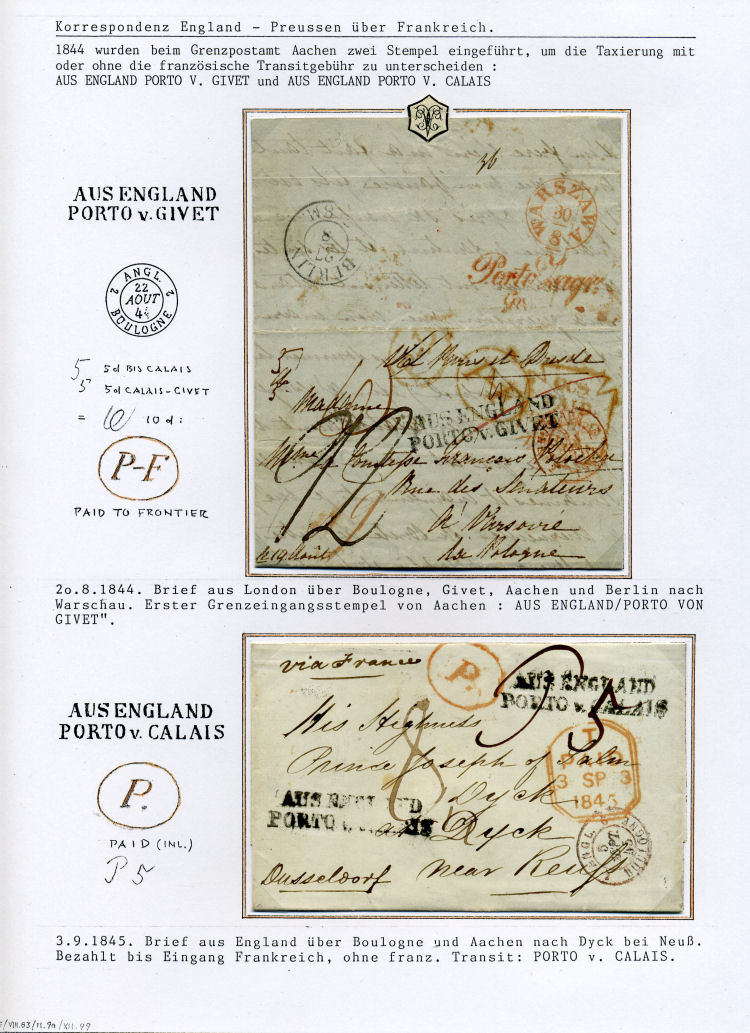 Korrespondenz England - Preussen über Frankreich.
1844 wurden beim Grenzpostamt Aachen zwei Stempel eingeführt, um die Taxierung mit
oder ohne die französische Transitgebühr zu unterscheiden :
AUS ENGLAND PORTO V. GIVET und AUS ENGLAND PORTO V. CALAIS
AUS ENGLAND
PORTO v. GIVET
2 ANGL. 2
22
AOUT
44
BOULOGNE
5 5d BIS CALAIS
5 5d CALAIS-GIVET
= 10 10 d:
P-F
PAID TO FRONTIER
36
WARSZAWA
30
8
BERLIN
27
8
Porto
via Paris et Dresde
5
5
Madame
AUS ENGLAND
PORTO v. GIVET
Mme La Comtesse Francois Potocka
Rue des Senateurs
à Varsovie
la Pologne
le 19 Août
2o.8.1844. Brief aus London über Boulogne, Givet, Aachen und Berlin nach
Warschau. Erster Grenzeingangsstempel von Aachen : AUS ENGLAND/PORTO VON
GIVET".
AUS ENGLAND
PORTO v. CALAIS
P.
PAID (INL.)
P 5
via France
P.
AUS ENGLAND
PORTO v. CALAIS
His Highness
Prince Joseph of Salm
Dyck
at Dyck
near Reuss
Dusseldorf
8
T
PAID
3 SP 3
1845
AUS ENGLAND
PORTO v. CALAIS
ANGL.
BOULOGNE
3.9.1845. Brief aus England über Boulogne und Aachen nach Dyck bei Neuß.
Bezahlt bis Eingang Frankreich, ohne franz. Transit: PORTO v. CALAIS.